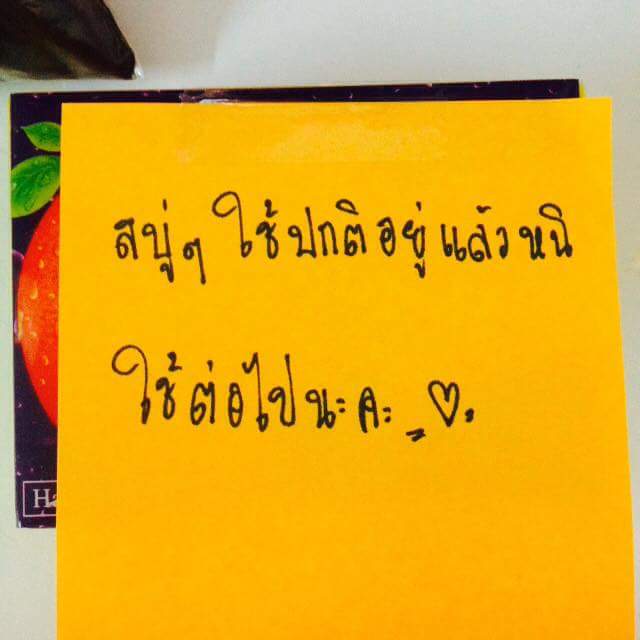 สบู่ๆ ใช้ปกติอยู่แล้วหนิ
ใช้ต่อไปนะคะ ♡
Ha